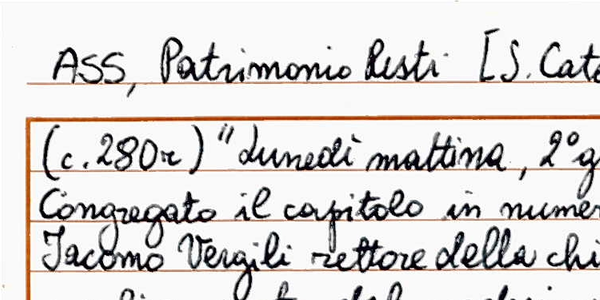 ASS, Patrimonio Resti [S. Cate
(c.280r) "Lunedì mattina, 2° g
Congregato il capitolo in numer
Jacomo Vergili rettore della chi